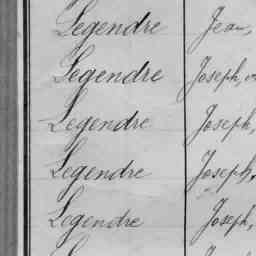 Legendre Jean,
Legendre Joseph,
Legendre Joseph,
Legendre Joseph,
Legendre Joseph,